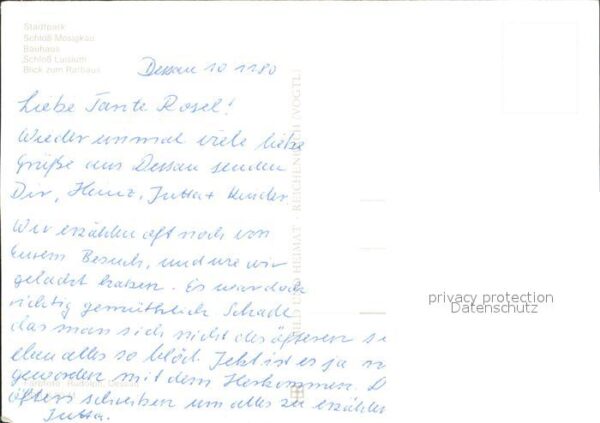 Stadtpark
Schloß Mosigkau
Bauhaus
Schloß Luisium
Blick zum Rathaus
Dessau 10 11 80
Liebe Tante Rosel!
Wieder einmal viele liebe
Grüße aus Dessau senden
Dir, Heinz, Jutta + Kinder
Wir erzählen oft noch von
Eurem Besuch, und wie wir
gelacht haben. Es war doch
richtig gemütlich Schade
das man sich nicht des öfteren
eben alles so blöd. Jetzt ist es ja
geworden mit dem Herkommen.
öfters schreiben um alles zu erzählen
Jutta.
BILD UND HEIMAT · REICHENBACH (VOGTL)
privacy protection
Datenschutz